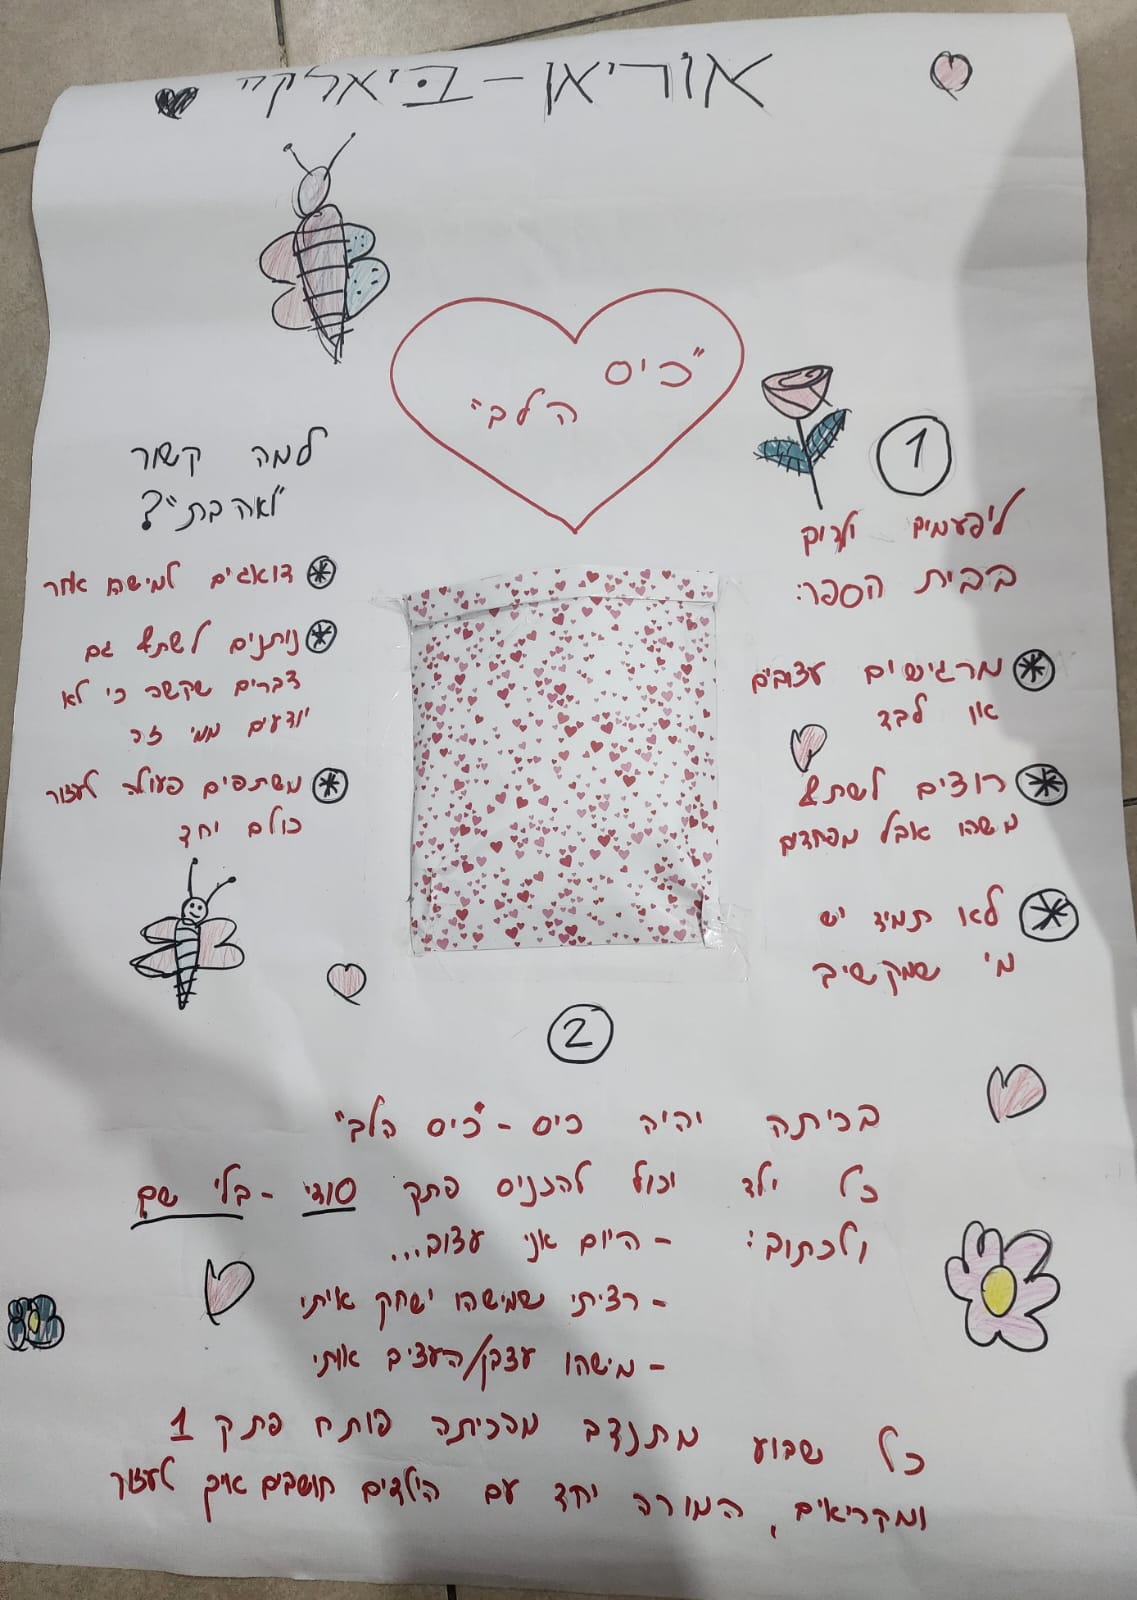 אוריאן - ביאליק"
"כיס
הלב"
1
ליפעמים ילדים
בבית הספר:
מרגישים עצובים
או לבד
רוצים לשתף
משהו אבל מפחדים
לאו תמיד יש
מי שמקשיב
למה קשור
"לאהבת"?
דואגים למישהו אחר
נותנים לשתף גם
דברים שקשה כי לא
יודעים ממי זה
משתפים פעולה לעזור
כולם יחד
2
בכיתה יהיה כיס - "כיס הלב"
כל ילד יכול להכניס פתק סודי - בלי שם
ולכתוב: - היום אני עצוב...
- רציתי שמישהו ישחק איתי
- מישהו עצבן/העציב אותי
כל שבוע מתנדב מהכיתה פותח פתק 1
ומקריאים, המורה יחד עם הילדים חושבים איך לעזור